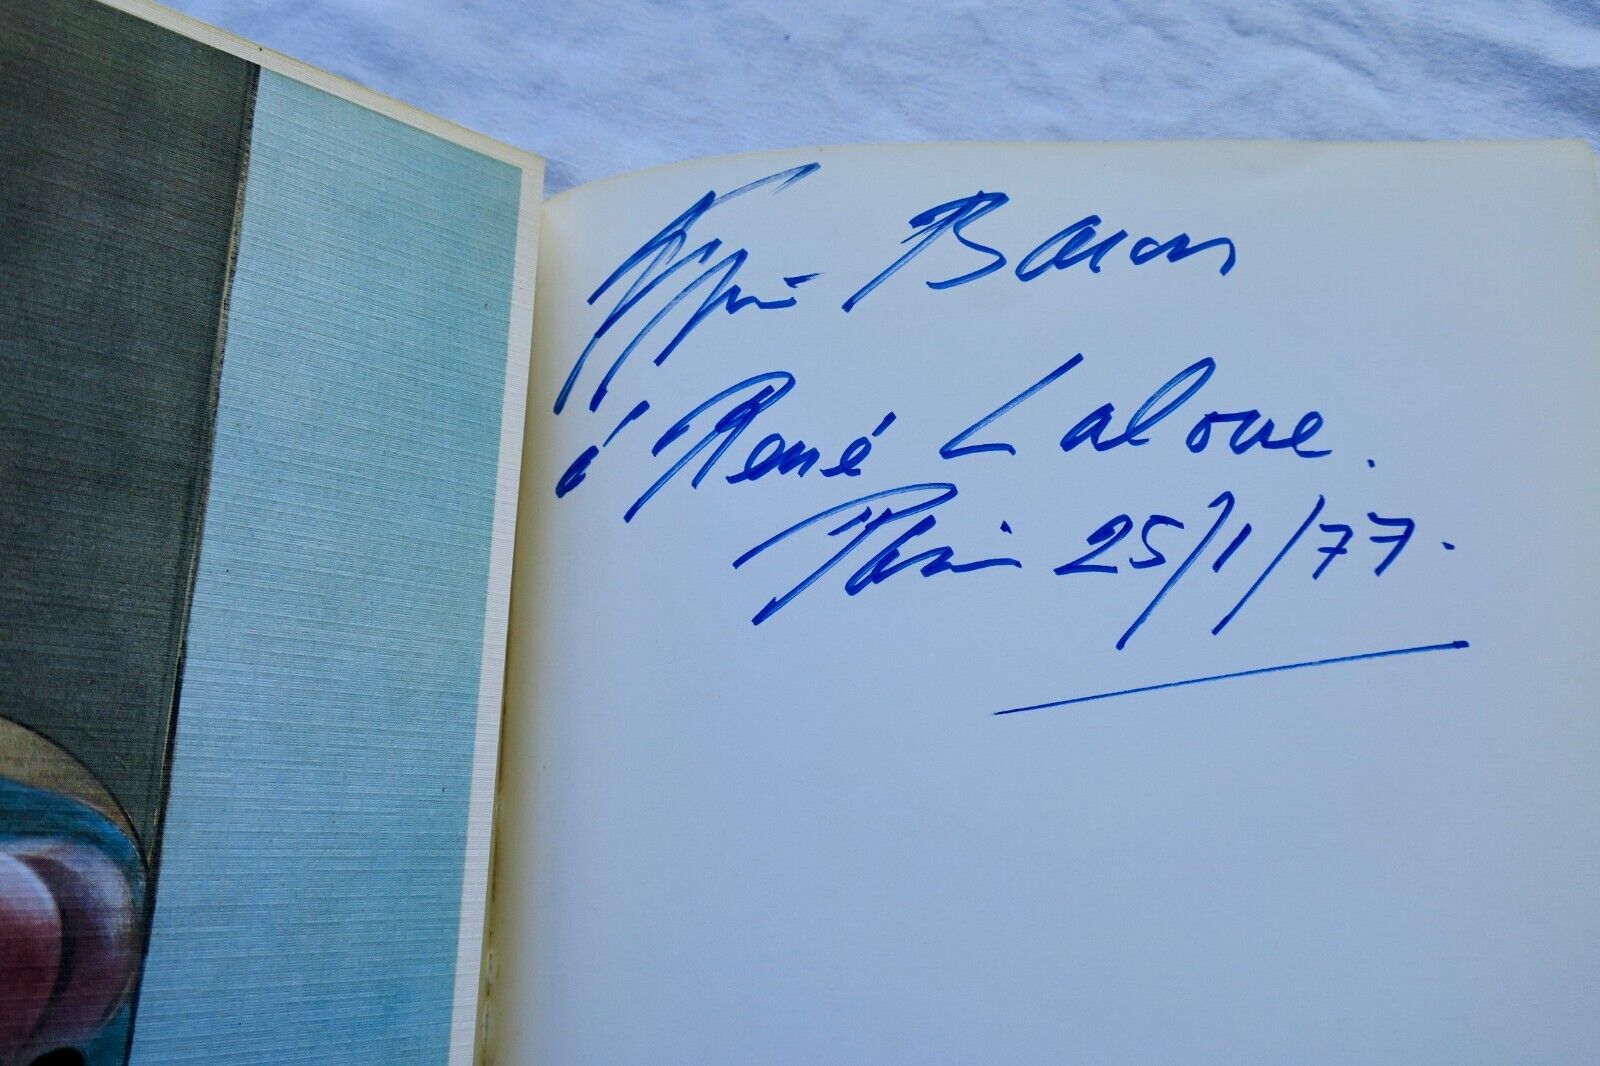 Bacon
à René Laloue.
Paris 25/1/77.